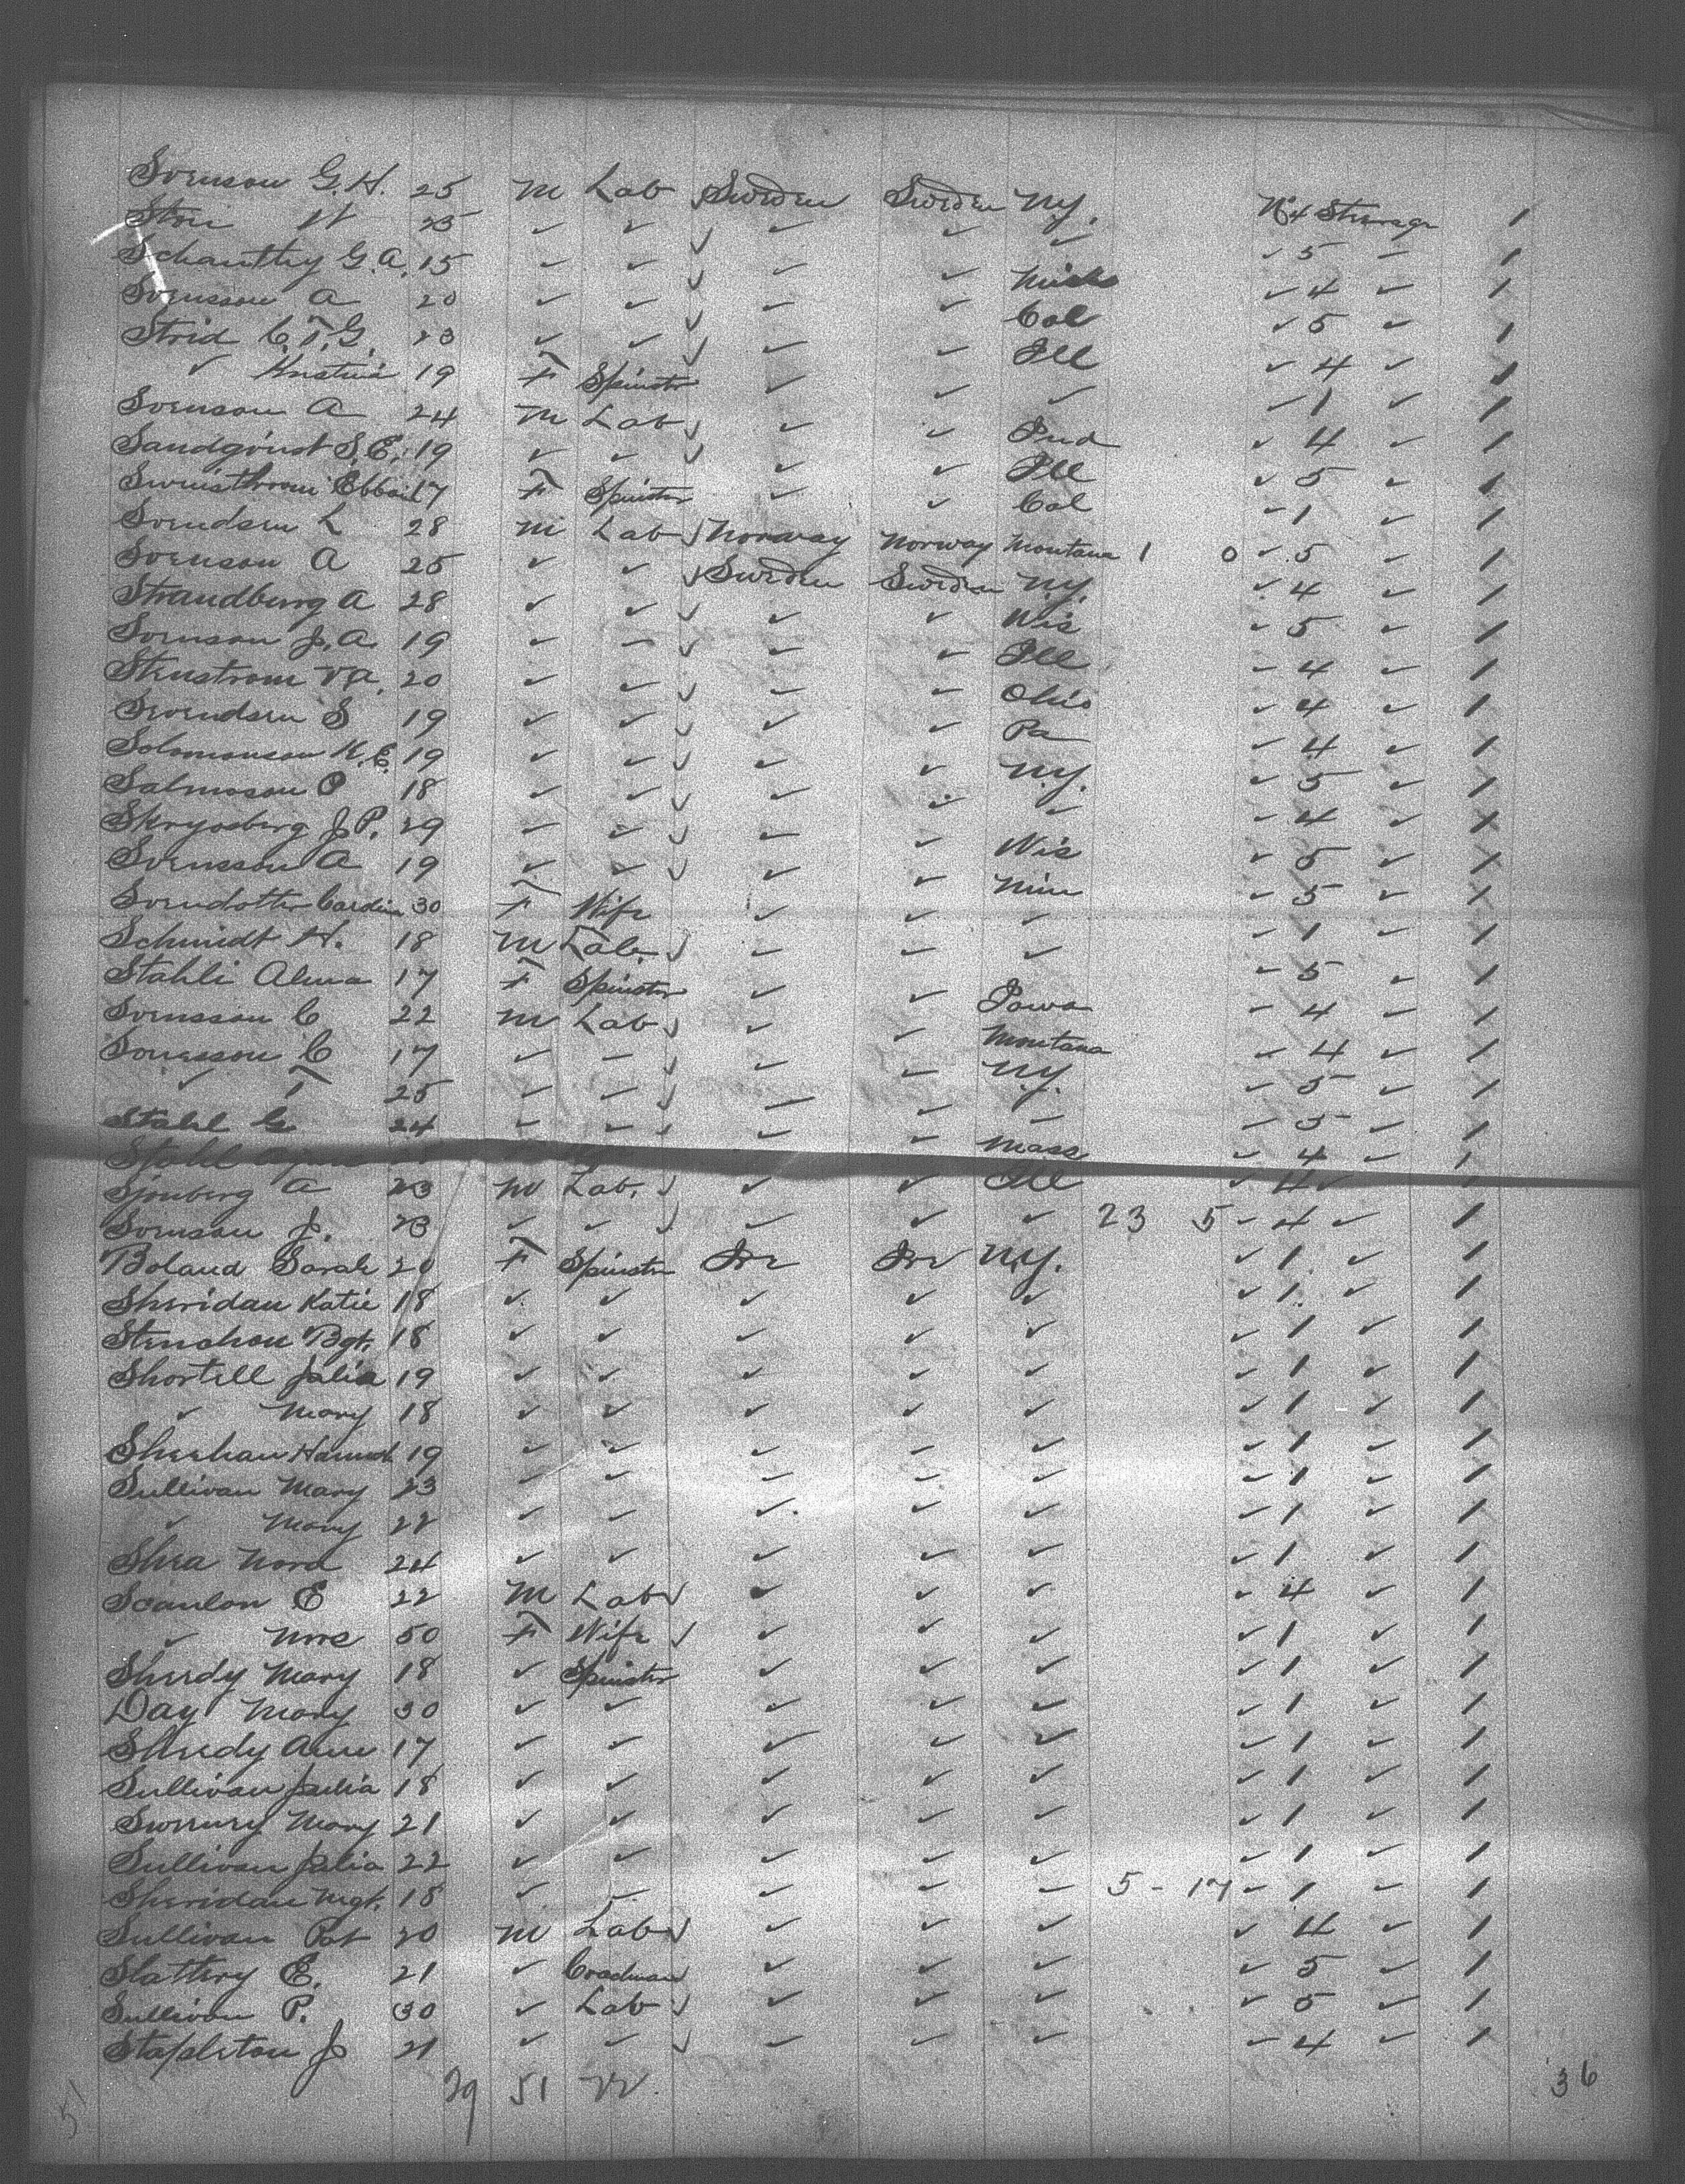 Svenson G.H. 25 M Lab Sweden Sweden N.Y. No 4 Steerage 1
H 25 ✓ ✓ ✓ ✓ ✓ ✓ 5 - 1
Schanthy G.A. 15 ✓ ✓ ✓ ✓ Mich ✓ 4 ✓ 1
Svensson A 20 ✓ ✓ ✓ ✓ Col ✓ 5 ✓ 1
Strid C.T.G. 23 ✓ ✓ ✓ ✓ Ill ✓ 4 ✓ 1
✓ Kristina 19 F Spinster ✓ ✓ ✓ ✓ 1 ✓ 1
Svenson A 24 M Lab ✓ ✓ Ind ✓ 4 ✓ 1
Sandqvist S.E. 19 ✓ ✓ ✓ ✓ Ill ✓ 5 ✓ 1
17 F Spinster ✓ ✓ Col ✓ 1 ✓ 1
Svendsen L 28 M Lab Norway Norway Montana 1 0 ✓ 5 ✓ 1
Svenson A 25 ✓ ✓ Sweden Sweden N.Y. ✓ 4 ✓ 1
Strandberg A 28 ✓ ✓ ✓ ✓ Wis ✓ 5 ✓ 1
Svenson J.A. 19 ✓ ✓ ✓ ✓ Ill ✓ 4 ✓ 1
Stenstrom V.A. 20 ✓ ✓ ✓ ✓ Ohio ✓ 4 ✓ 1
Svendsen S 19 ✓ ✓ ✓ ✓ Pa ✓ 4 ✓ 1
Solomonson K.E. 19 ✓ ✓ ✓ ✓ N.Y. ✓ 5 ✓ 1
Salmoson P 18 ✓ ✓ ✓ ✓ ✓ ✓ 4 ✓ 1
J.P. 29 ✓ ✓ ✓ ✓ Wis ✓ 5 ✓ 1
Svensson A 19 ✓ ✓ ✓ ✓ Min ✓ 5 ✓ 1
Svendotter 30 F Wife ✓ ✓ ✓ ✓ 1 ✓ 1
Schmidt H. 18 M Lab. ✓ ✓ ✓ ✓ 5 ✓ 1
Stahli Alma 17 F Spinster ✓ ✓ Iowa ✓ 4 ✓ 1
Svensson C 22 M Lab ✓ ✓ Montana ✓ 4 ✓ 1
Sonesson C 17 ✓ ✓ ✓ ✓ N.Y. ✓ 5 ✓ 1
✓ T 25 ✓ ✓ ✓ ✓ ✓ ✓ 5 ✓ 1
Stahl G 24 ✓ ✓ ✓ ✓ Mass ✓ 4 ✓ 1
Stahl
Sjonberg A 23 M Lab. ✓ ✓ Ill ✓ 4 ✓ 1
Svenson J. 23 ✓ ✓ ✓ ✓ ✓ 23 5 ✓ 4 ✓ 1
Boland Sarah 20 F Spinster Ire Ire N.Y. ✓ 1 ✓ 1
Sheridan Katie 18 ✓ ✓ ✓ ✓ ✓ ✓ 1 ✓ 1
Stenchon Bgt. 18 ✓ ✓ ✓ ✓ ✓ ✓ 1 ✓ 1
Shortell Julia 19 ✓ ✓ ✓ ✓ ✓ ✓ 1 ✓ 1
✓ Mary 18 ✓ ✓ ✓ ✓ ✓ ✓ 1 ✓ 1
Sheehan Hannah 19 ✓ ✓ ✓ ✓ ✓ ✓ 1 ✓ 1
Sullivan Mary 23 ✓ ✓ ✓ ✓ ✓ ✓ 1 ✓ 1
✓ Mary 22 ✓ ✓ ✓ ✓ ✓ ✓ 1 ✓ 1
Shea Nora 24 ✓ ✓ ✓ ✓ ✓ ✓ 1 ✓ 1
Scanlon E 22 M Lab ✓ ✓ ✓ ✓ 4 ✓ 1
✓ Mrs 50 F Wife ✓ ✓ ✓ ✓ 1 ✓ 1
Sheedy Mary 18 ✓ Spinster ✓ ✓ ✓ ✓ 1 ✓ 1
Day Mary 30 ✓ ✓ ✓ ✓ ✓ ✓ 1 ✓ 1
Sheedy Anne 17 ✓ ✓ ✓ ✓ ✓ ✓ 1 ✓ 1
Sullivan Julia 18 ✓ ✓ ✓ ✓ ✓ ✓ 1 ✓ 1
Sweeney Mary 21 ✓ ✓ ✓ ✓ ✓ ✓ 1 ✓ 1
Sullivan Julia 22 ✓ ✓ ✓ ✓ ✓ ✓ 1 ✓ 1
Sheridan Mgt. 18 ✓ ✓ ✓ ✓ ✓ 5 - 17 ✓ 1 ✓ 1
Sullivan Pat 20 M Lab ✓ ✓ ✓ ✓ 4 ✓ 1
Slattery E. 21 ✓ ✓ ✓ ✓ ✓ 5 ✓ 1
Sullivan P. 30 ✓ Lab ✓ ✓ ✓ ✓ 5 ✓ 1
Stapleton J 21 ✓ ✓ ✓ ✓ ✓ ✓ 4 ✓ 1
29 51 22
51
36